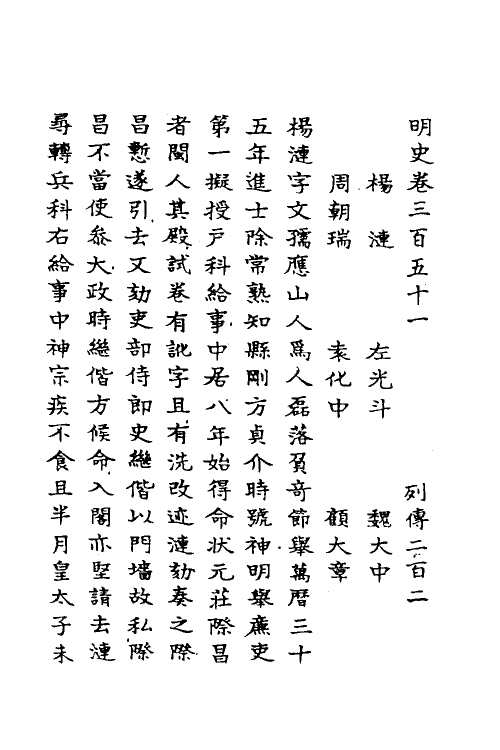 明史卷三百五十一　列傳二百二
楊漣　左光斗　魏大中
周朝瑞　袁化中　顧大章
楊漣字文孺應山人爲人磊落負奇節舉萬曆三十
五年進士除常熟知縣剛方貞介時號神明舉廉吏
第一擬授戸科給事中居八年始得命狀元莊際昌
者閩人其殿試卷有訛字且有洗改迹漣劾奏之際
昌慙遂引去又劾吏部侍郎史繼偕以門墻故私際
昌不當使叅大政時繼偕方候命入閣亦堅請去漣
尋轉兵科右給事中神宗疾不食且半月皇太子未